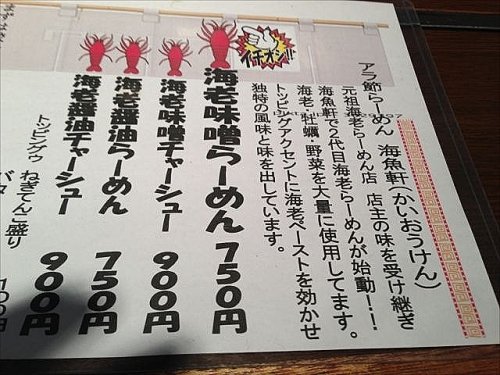 アラ節らーめん 海魚軒(かいおうけん)
元祖海老らーめん店 店主の味を受け継ぎ
海魚軒で2代目海老らーめんが始動!!
海老・牡蠣・野菜を大量に使用してます。
トッピングアクセントに海老ペーストを効かせ
独特の風味と味を出しています。
イチオシ!!
海老味噌らーめん 750円
海老味噌チャーシュー 900円
海老醤油らーめん 750円
海老醤油チャーシュー 900円
トッピング ねぎてんこ盛り
バタ 100円